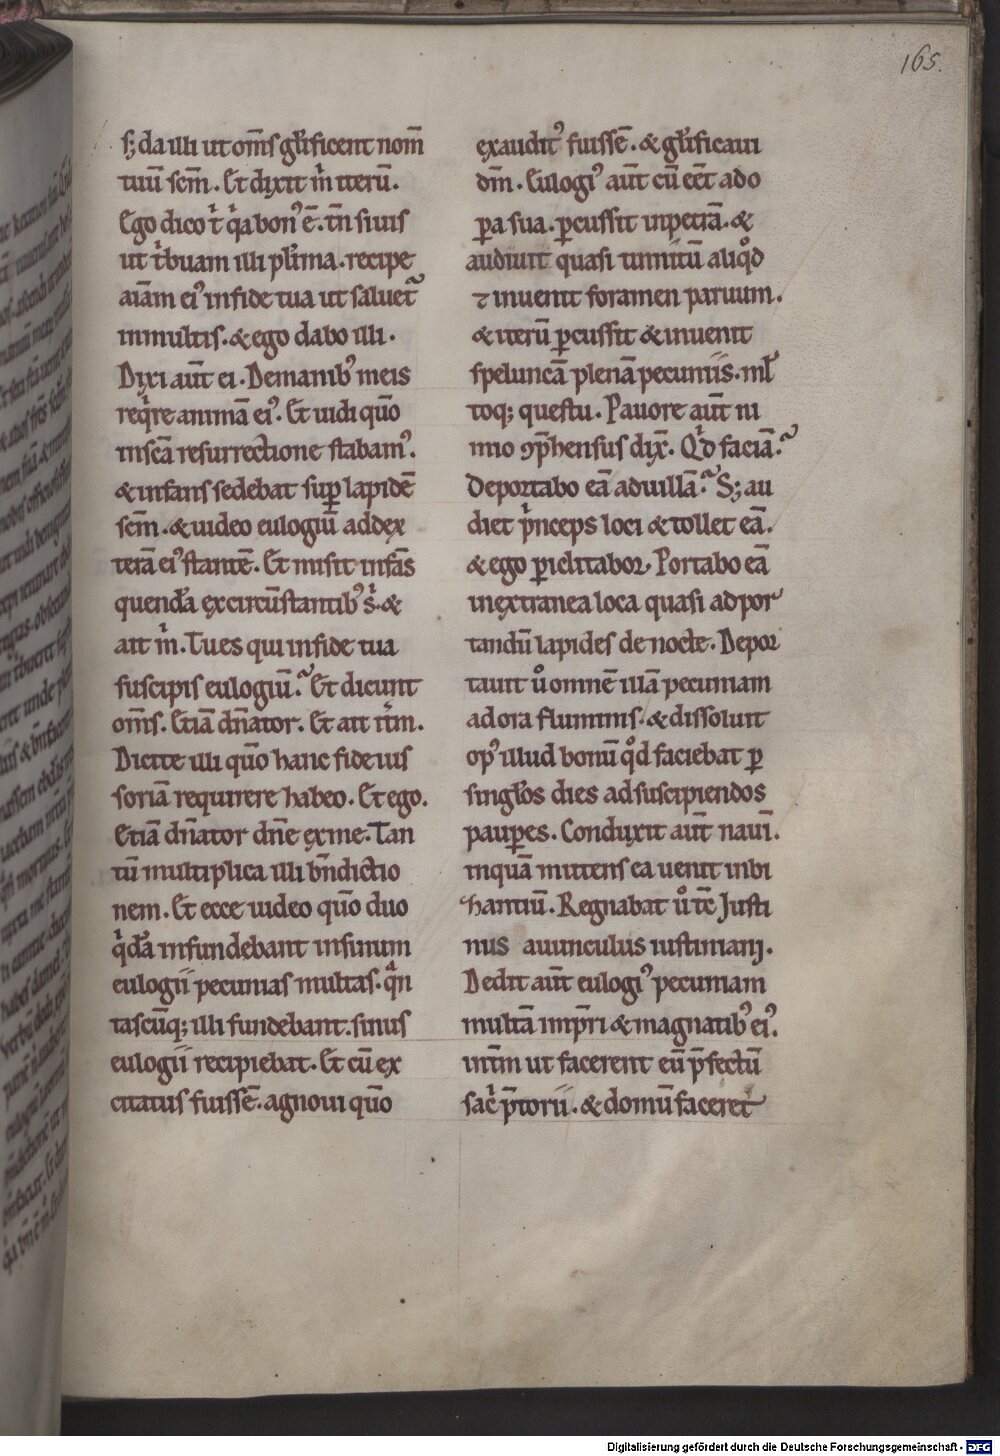 165.
s; da illi ut om̄s gl̓ificent nom̄
tuū scm̄. Et dixit m̄ iterū.
Ego dico t̄ q̓a bon᾽ ē. tn̄ si uis
ut t̓buam illi pl̓ima. recipe
aīam ei᾽ in fide tua ut saluet᾽
in multis. & ego dabo illi.
Dixi aut̄ ei. De manib᾽ meis
req̓re animā ei᾽. Et uidi quō
in scā resurrectione stabam᾽.
& infans sedebat sup̱ lapidē
scm̄. & uideo eulogiū ad dex
terā ei᾽ stantē. Et misit infās
quendā ex circūstantib᾽ s̓. &
ait m̓. Tu es qui in fide tua
suscipis eulogiū? Et dicunt
om̄s. Etiā dn̄ator. Et ait it̄m.
Dicite illi quō hanc fideius
soriā requirere habeo. Et ego.
Etiā dn̄ator dn̄e ex me. Tan
tū multiplica illi bn̄dictio
nem. Et ecce uideo quō duo
q̓dā infundebant in sinum
eulogii pecunias multas. q̓n
tascūq; illi fundebant. sinus
eulogii recipiebat. Et cū ex
citatus fuissē. agnoui quō
exaudit᾽ fuissē. & gl̓ificaui
dm̄. Eulogi᾽ aut̄ cū eēt ad o
p̱a sua. p̱cussit in petrā. &
audiuit quasi tinnitū aliq̊d
⁊ inuenit foramen paruum.
& iterū p̱cussit & inuenit
speluncā plenā pecuniis. ml̓
toq; questu. Pauore aut̄ ni
mio ꝯp̄hensus dix̄. Q̓d faciā?
Deportabo eā ad uillā? S; au
diet p̓nceps loci & tollet eā.
& ego p̱iclitabor. Portabo eā
in extranea loca quasi ad por
tandū lapides de nocte. Depor
tauit ů omnē illā pecuniam
ad ora fluminis. & dissoluit
op᾽ illud bonū q̊d faciebat p̱
singl̓os dies ad suscipiendos
paup̱es. Conduxit aut̄ nauī.
in quā mittens ea uenit in bi
hantiū. Regnabat ů tc̄ Justi
nus auunculus iustiniani.
Dedit aut̄ eulogi᾽ pecuniam
multā imp̄ri & magnatib᾽ ei᾽.
it̄m ut facerent eū p̄fectū
sac̓ p̄torii. & domū faceret
Digitalisierung gefördert durch die Deutsche Forschungsgemeinschaft - DFG